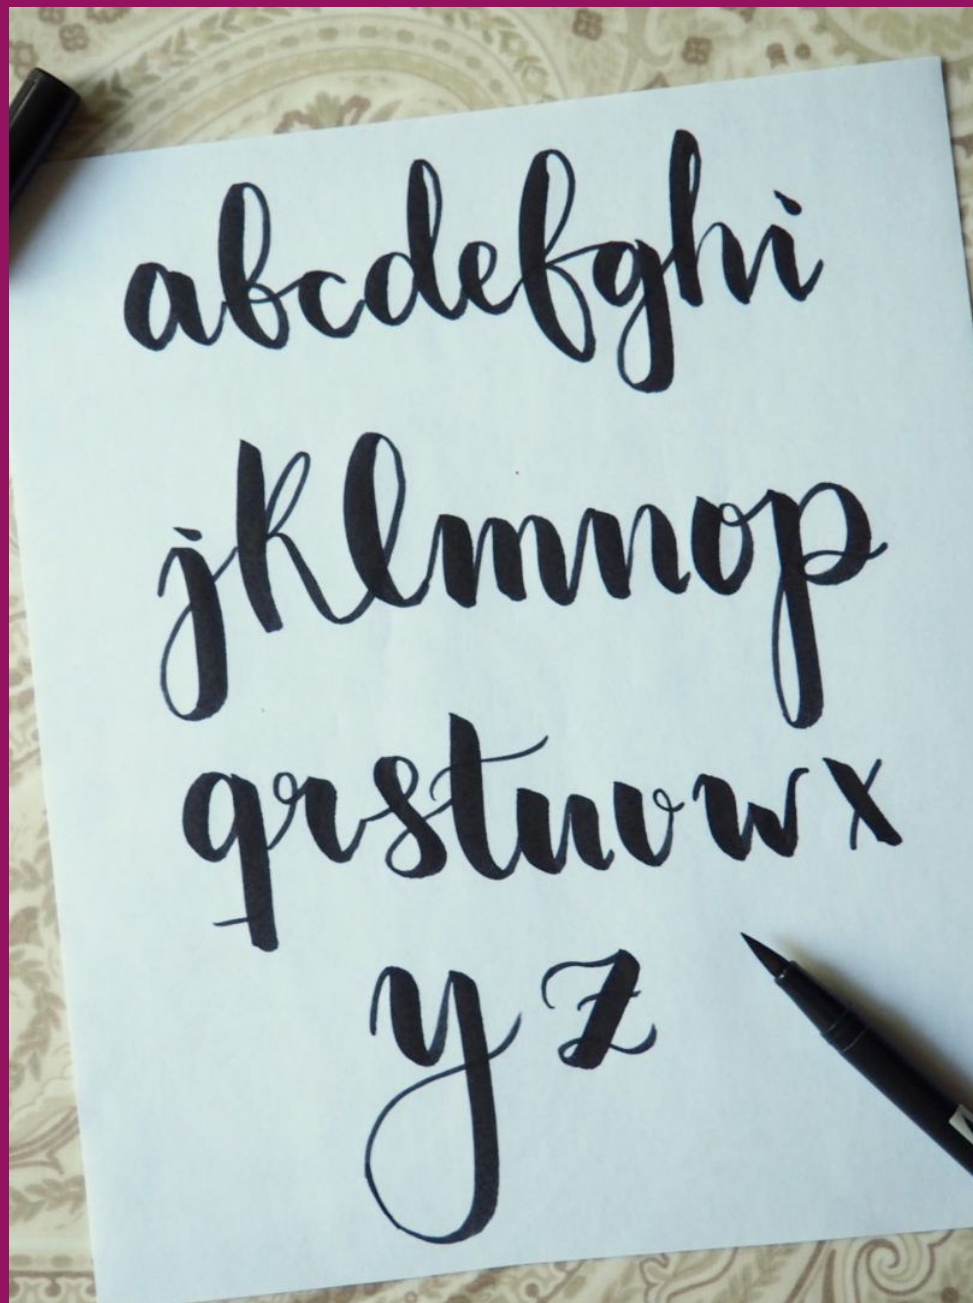 abcdefghi
jklmnop
qrstuvwx
yz